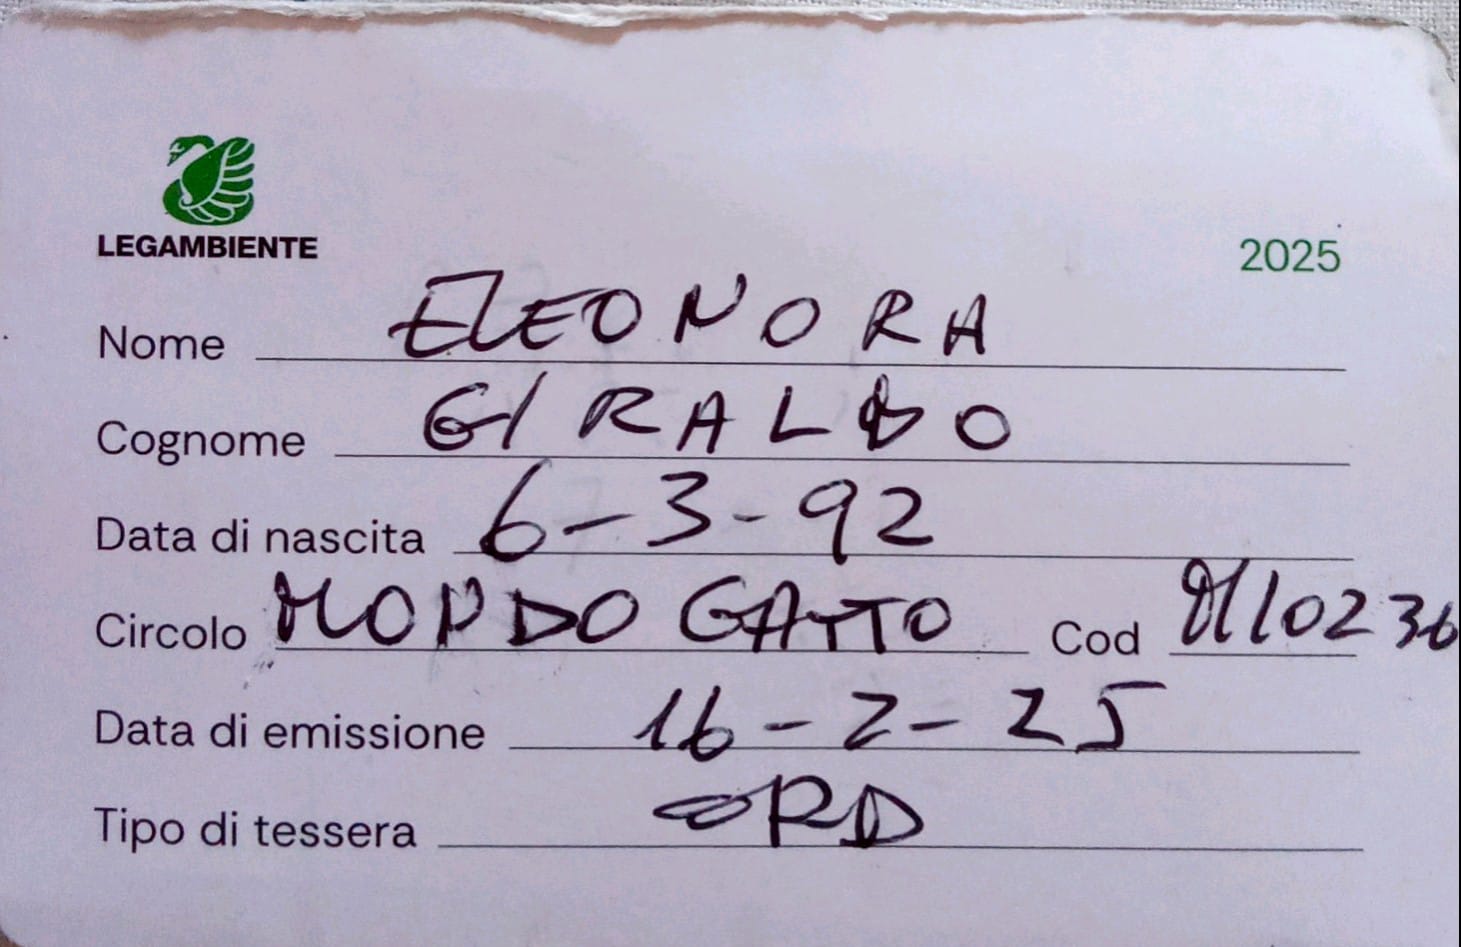 LEGAMBIENTE
2025
Nome ELEONORA
Cognome GIRALDO
Data di nascita 6-3-92
Circolo MONDO GATTO Cod MI10236
Data di emissione 16-2-25
Tipo di tessera ORD